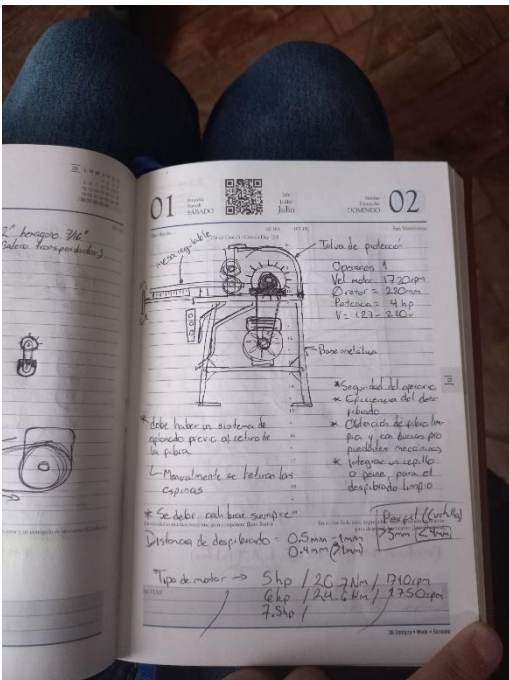 2" hexagono 7/16"
01
SÁBADO
Julio
DOMINGO
02
mesa regulable
Tolva de protección
Operarios 1
Vel motor 1720rpm
Ø rotor = 220mm
Potencia = 4hp
V = 127-220v
Base metálica
Jul
* Seguridad del operario
* Eficiencia del desfibrado
* Obtención de fibra limpia y con buenas propiedades mecánicas
* Integrar un cepillo o peine para el desfibrado limpio
* debe haber un sistema de aplanado previo al retiro de la fibra.
Manualmente se retiran las espinas
* Se debe calibrar siempre
Distancia de desfibrado = 0.5mm - 1mm
0.4mm (>1mm)
>3mm <4mm
*Tipo de motor → 5hp / 20.7Nm / 1710rpm
6hp / 24.6Nm / 1750rpm
7.5hp /
NOTAS